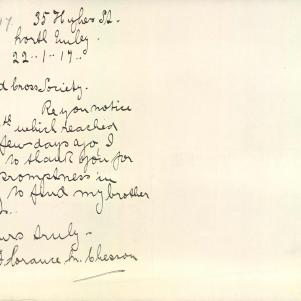 17. 35 Hughes St.
North Unley.
22-1-17.
d Cross Society.
Re you notice
th which reached
few days ago, I
to thank you for
promptness in
to find my brother
urs truly -
Florance M. Chesson